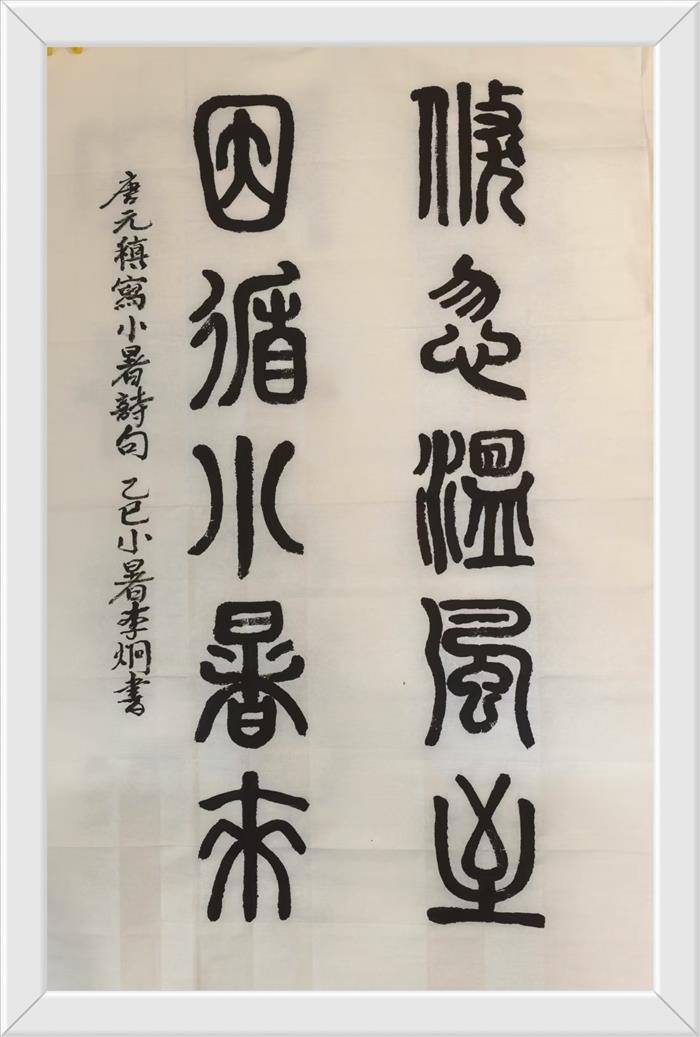 倏忽溫風至
因循小暑來
唐元稹寫小暑詩句 乙巳小暑李炯書